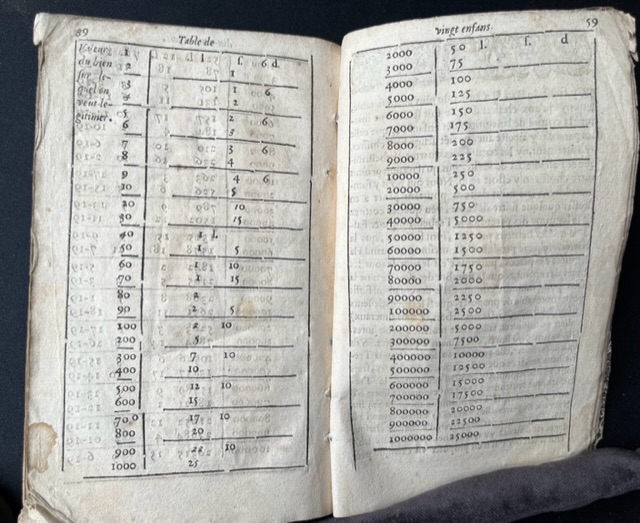 Table de
1 6 d.
2 1
3 1 6
4 2
5 2 6
6 3
7 3 6
8 4
9 4 6
10 5
20 10
30 15
40 1 l.
50 1 5
60 1 10
70 1 15
80 2
90 2 5
100 2 10
200 5
300 7 10
400 10
500 12 10
600 15
700 17 10
800 20
900 22 10
1000 25
du bien
ſur le-
quel on
veut le-
gitimer.
vingt enfans. 59
2000 50 l. ſ. d
3000 75
4000 100
5000 125
6000 150
7000 175
8000 200
9000 225
10000 250
20000 500
30000 750
40000 5000
50000 1250
60000 1500
70000 1750
80000 2000
90000 2250
100000 2500
200000 5000
300000 7500
400000 10000
500000 12500
600000 15000
700000 17500
800000 20000
900000 22500
1000000 25000